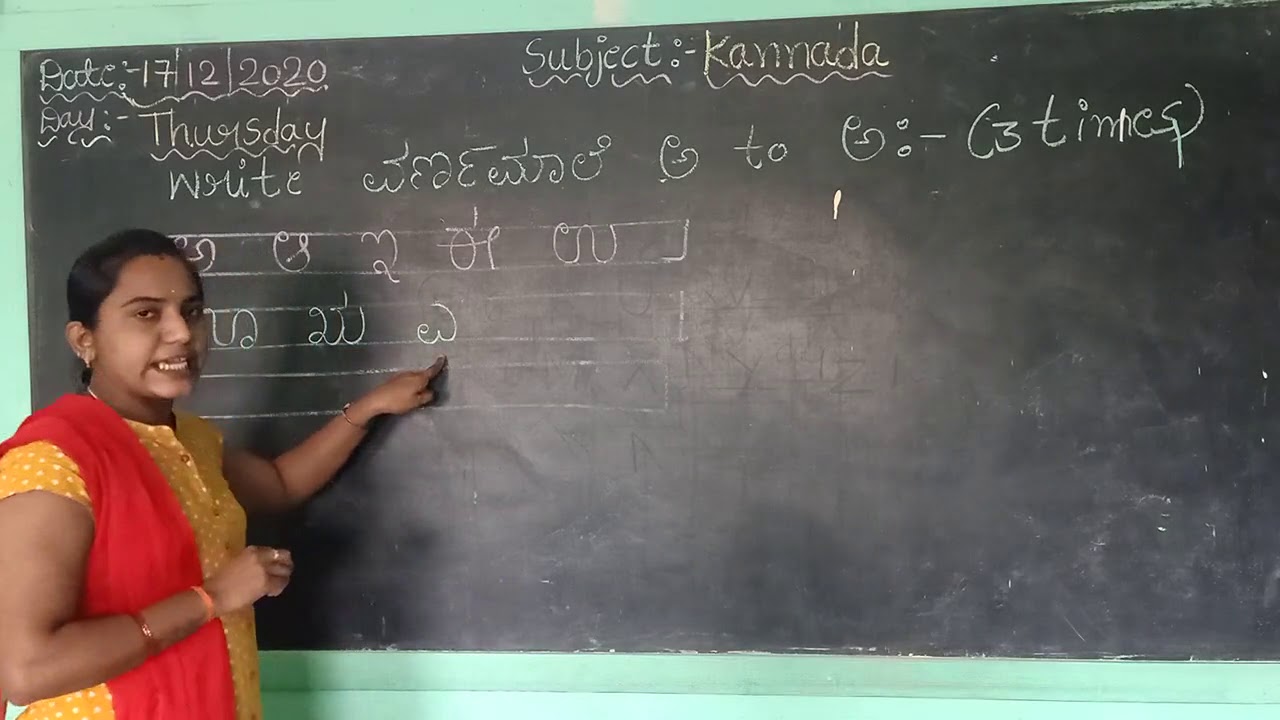 Date:-17/12/2020
Subject:-Kannada
Day:- Thursday
Write ವರ್ಣಮಾಲೆ ಅ to ಅಃ:- (3 times)
ಅ ಆ ಇ ಈ ಉ
ಊ ಋ ಎ